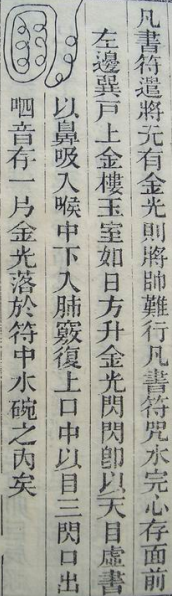 凡書符遣將无有金光則將帥難行凡書符咒水完心存面前
左邊巽戸上金樓玉室如日方升金光閃閃卽以天目虛書
以鼻吸入喉中下入肺竅復上口中以目三閃口出
呬音存一片金光落於符中水碗之內矣